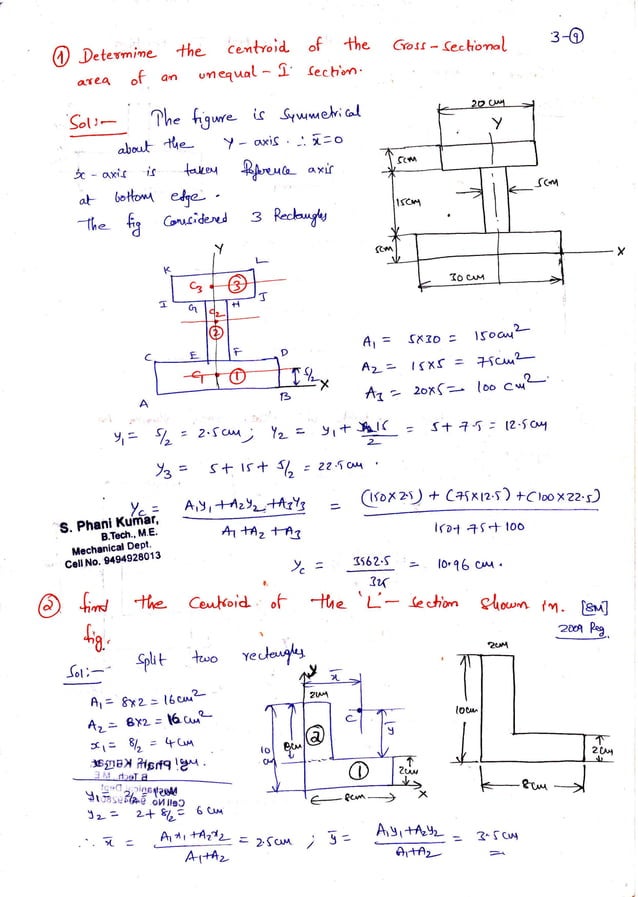 3-9
① Determine the centroid of the Cross-Sectional
area of an unequal-I section.
Sol:- The figure is Symmetrical
about the Y-axis. ∴ x̄=0
x-axis is taken Reference axis
at bottom edge.
The fig Considered 3 Rectangles
20cm
Y
5cm
15cm
5cm
5cm
X
30cm
Y
K
L
C3
③
I
G
H
J
C2
②
C
E
F
D
①
5/2
A
B
X
A1 = 5x30 = 150cm²
A2 = 15x5 = 75cm²
A3 = 20x5 = 100 cm²
y1 = 5/2 = 2.5cm; y2 = y1 + 15/2 = 5+7.5 = 12.5cm
y3 = 5+15+5/2 = 22.5cm.
yc = A1y1+A2y2+A3y3 / A1+A2+A3 = (150x2.5)+(75x12.5)+(100x22.5) / 150+75+100
S. Phani Kumar,
B.Tech., M.E.
Mechanical Dept.
Cell No. 9494928013
yc = 3562.5 / 325 = 10.96 cm.
② find the Centroid of the 'L'-section shown in. [8M]
fig.
2009 Reg
Sol:- Split two rectangles
A1 = 8x2 = 16cm²
A2 = 8x2 = 16 cm²
x1 = 8/2 = 4cm
y2 = 2+8/2 = 6cm
y
x̄
2cm
C
②
ȳ
10cm
8cm
①
2cm
8cm
X
2cm
10cm
2cm
8cm
∴ x̄ = A1x1+A2x2 / A1+A2 = 2.5cm ; ȳ = A1y1+A2y2 / A1+A2 = 3.5cm